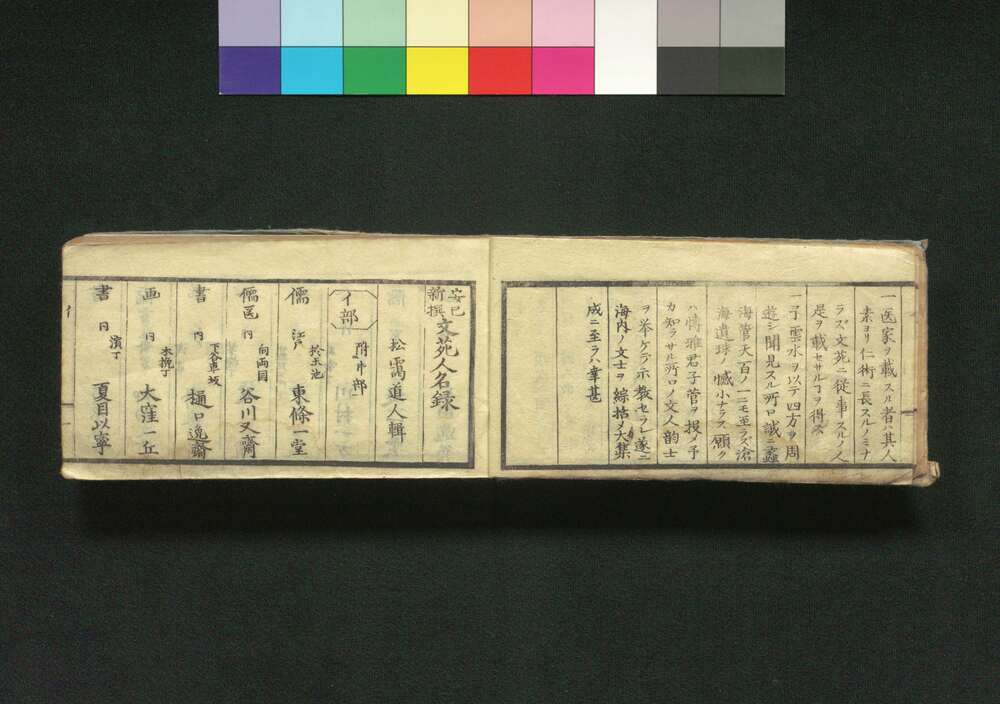 一医家ヲ載スル者ハ其人
素ヨリ仁術ニ長スルノミナ
ラズ文苑ニ従事スルノ人
是ヲ載セサルヿヲ得ス
一予雲水ヲ以テ四方ヲ周
遊シ聞見スル所ロ誠ニ蠡
海管天百ノ一ニモ至ラズ滄
海遺珠ノ憾小ナラス願ク
ハ博雅君子菅ヲ投メ予
カ知ラサル所ロノ文人韵士
ヲ挙ケテ示教セラレ遂ニ
海内ノ文士ヲ綜括メ大集
成ニ至ラハ幸甚
安巳
新撰
文苑人名録
松靄道人輯
イ部
附ヰ部
儒 江戸 於玉池 東條一堂
儒医 仝 向両国 谷川又齋
書 仝 下谷車坂 樋口逸齋
画 仝 木挽丁 大窪一丘
書 仝 濱丁 夏目以寧
イ